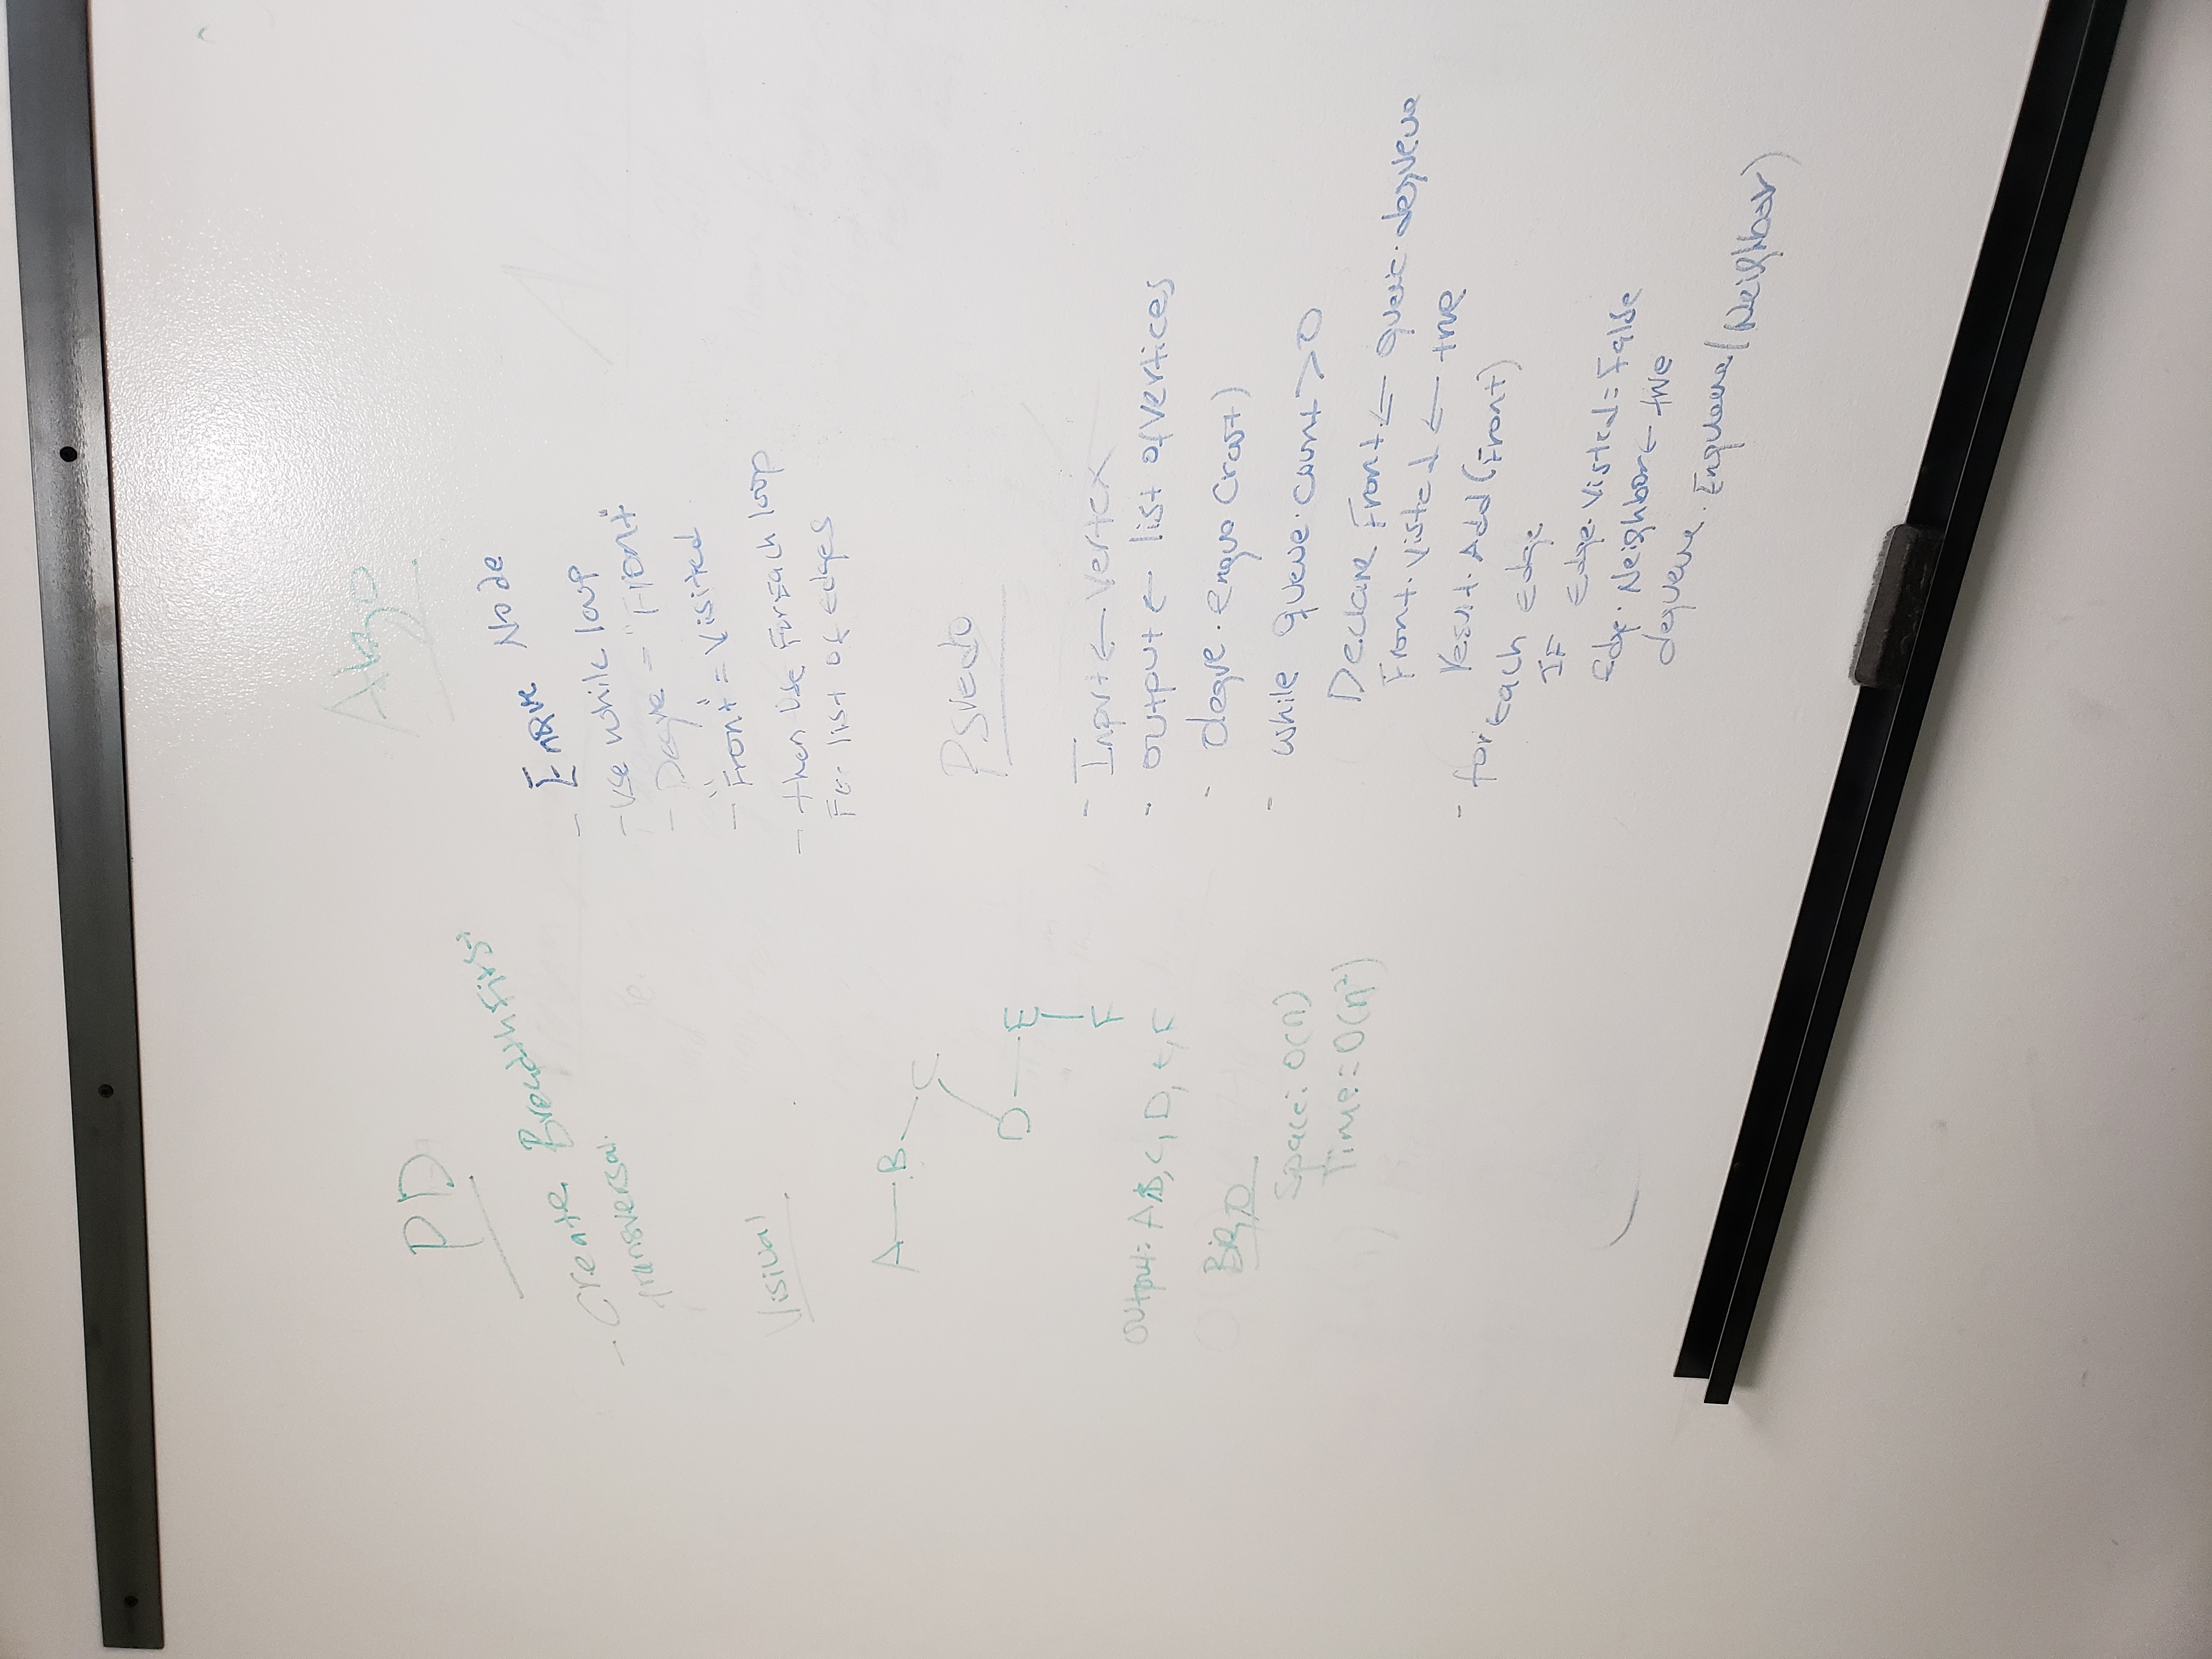 PD
- Create Breadth First
transversal.
Visiual
A B C
D E
F
output: A, B, C, D, E, F
Big O
Space: O(n)
Time = O(n²)
Algo
- EnQue Node
- Use while loop
- Deqve = "Front"
- "Front" = Visited
- then Use ForEach loop
For list of edges
Psvedo
- Input ← Vertex
- output ← list of vertices
- deqve . enque (root)
- while queue . count > 0
Declare Front ← queue . dequeue
Front . Visted ← true
Result . Add (Front)
- for Each Edge
IF Edge . Visted = False
Edge . Neighbor ← true
dequeue . Enqueue (Neighbor)